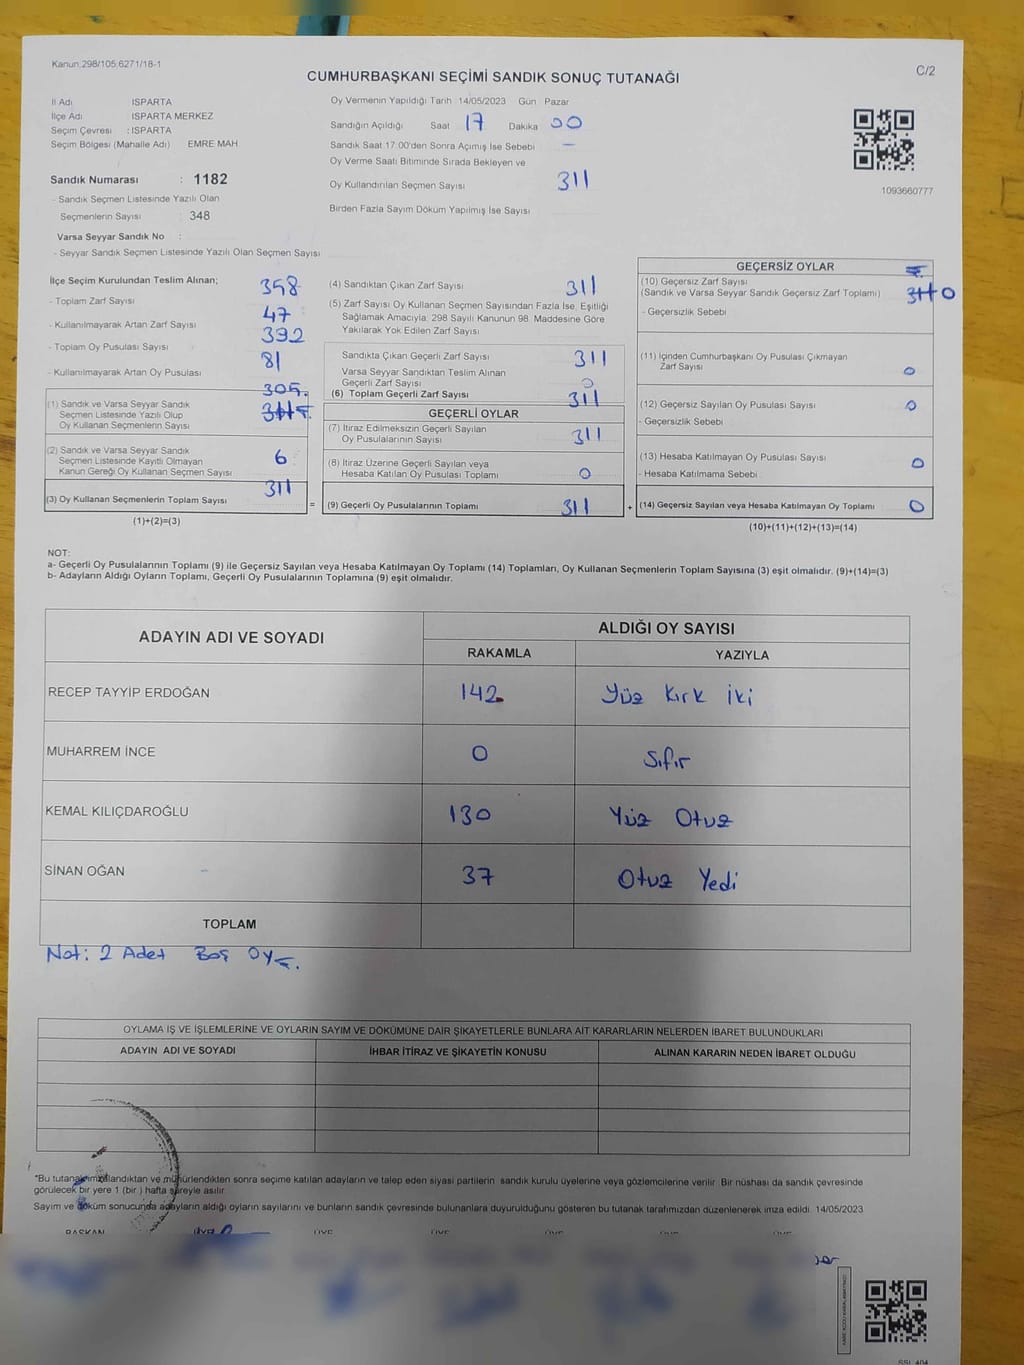 Kanun:298/105,6271/18-1
C/2
CUMHURBAŞKANI SEÇİMİ SANDIK SONUÇ TUTANAĞI
İl Adı ISPARTA
İlçe Adı ISPARTA MERKEZ
Seçim Çevresi : ISPARTA
Seçim Bölgesi (Mahalle Adı) EMRE MAH
Sandık Numarası : 1182
- Sandık Seçmen Listesinde Yazılı Olan
Seçmenlerin Sayısı : 348
Varsa Seyyar Sandık No :
- Seyyar Sandık Seçmen Listesinde Yazılı Olan Seçmen Sayısı
Oy Vermenin Yapıldığı Tarih 14/05/2023 Gün Pazar
Sandığın Açıldığı Saat 17 Dakika 00
Sandık Saat 17.00'den Sonra Açımış İse Sebebi –
Oy Verme Saati Bitiminde Sırada Bekleyen ve
Oy Kullandırılan Seçmen Sayısı 311
Birden Fazla Sayım Döküm Yapılmış İse Sayısı
1093660777
İlçe Seçim Kurulundan Teslim Alınan;
- Toplam Zarf Sayısı 358
- Kullanılmayarak Artan Zarf Sayısı 47
- Toplam Oy Pusulası Sayısı 392
- Kullanılmayarak Artan Oy Pusulası 81
(1) Sandık ve Varsa Seyyar Sandık
Seçmen Listesinde Yazılı Olup
Oy Kullanan Seçmenlerin Sayısı
305.
(2) Sandık ve Varsa Seyyar Sandık
Seçmen Listesinde Kayıtlı Olmayan
Kanun Gereği Oy Kullanan Seçmen Sayısı 6
(3) Oy Kullanan Seçmenlerin Toplam Sayısı 311
(1)+(2)=(3)
(4) Sandıktan Çıkan Zarf Sayısı 311
(5) Zarf Sayısı Oy Kullanan Seçmen Sayısından Fazla İse, Eşitliği
Sağlamak Amacıyla; 298 Sayılı Kanunun 98. Maddesine Göre
Yakılarak Yok Edilen Zarf Sayısı
Sandıkta Çıkan Geçerli Zarf Sayısı 311
Varsa Seyyar Sandıktan Teslim Alınan
Geçerli Zarf Sayısı 0
(6) Toplam Geçerli Zarf Sayısı 311
GEÇERLİ OYLAR
(7) İtiraz Edilmeksizin Geçerli Sayılan
Oy Pusulalarının Sayısı 311
(8) İtiraz Üzerine Geçerli Sayılan veya
Hesaba Katılan Oy Pusulası Toplamı 0
= (9) Geçerli Oy Pusulalarının Toplamı 311
GEÇERSİZ OYLAR
(10) Geçersiz Zarf Sayısı
(Sandık ve Varsa Seyyar Sandık Geçersiz Zarf Toplamı) 0
- Geçersizlik Sebebi
(11) İçinden Cumhurbaşkanı Oy Pusulası Çıkmayan
Zarf Sayısı 0
(12) Geçersiz Sayılan Oy Pusulası Sayısı 0
- Geçersizlik Sebebi
(13) Hesaba Katılmayan Oy Pusulası Sayısı 0
- Hesaba Katılmama Sebebi
+ (14) Geçersiz Sayılan veya Hesaba Katılmayan Oy Toplamı 0
(10)+(11)+(12)+(13)=(14)
NOT:
a- Geçerli Oy Pusulalarının Toplamı (9) ile Geçersiz Sayılan veya Hesaba Katılmayan Oy Toplamı (14) Toplamları, Oy Kullanan Seçmenlerin Toplam Sayısına (3) eşit olmalıdır. (9)+(14)=(3)
b- Adayların Aldığı Oyların Toplamı, Geçerli Oy Pusulalarının Toplamına (9) eşit olmalıdır.
ADAYIN ADI VE SOYADI
ALDIĞI OY SAYISI
RAKAMLA YAZIYLA
RECEP TAYYİP ERDOĞAN 142 Yüz Kırk İki
MUHARREM İNCE 0 Sıfır
KEMAL KILIÇDAROĞLU 130 Yüz Otuz
SİNAN OĞAN 37 Otuz Yedi
TOPLAM
Not: 2 Adet Boş Oy
OYLAMA İŞ VE İŞLEMLERİNE VE OYLARIN SAYIM VE DÖKÜMÜNE DAİR ŞİKAYETLERLE BUNLARA AİT KARARLARIN NELERDEN İBARET BULUNDUKLARI
ADAYIN ADI VE SOYADI İHBAR İTİRAZ VE ŞİKAYETİN KONUSU ALINAN KARARIN NEDEN İBARET OLDUĞU
*Bu tutanak imzalandıktan ve mühürlendikten sonra seçime katılan adayların ve talep eden siyasi partilerin sandık kurulu üyelerine veya gözlemcilerine verilir. Bir nüshası da sandık çevresinde
görülecek bir yere 1 (bir) hafta süreyle asılır.
Sayım ve döküm sonucunda adayların aldığı oyların sayılarını ve bunların sandık çevresinde bulunanlara duyurulduğunu gösteren bu tutanak tarafımızdan düzenlenerek imza edildi. 14/05/2023
BAŞKAN ÜYE ÜYE ÜYE ÜYE ÜYE ÜYE